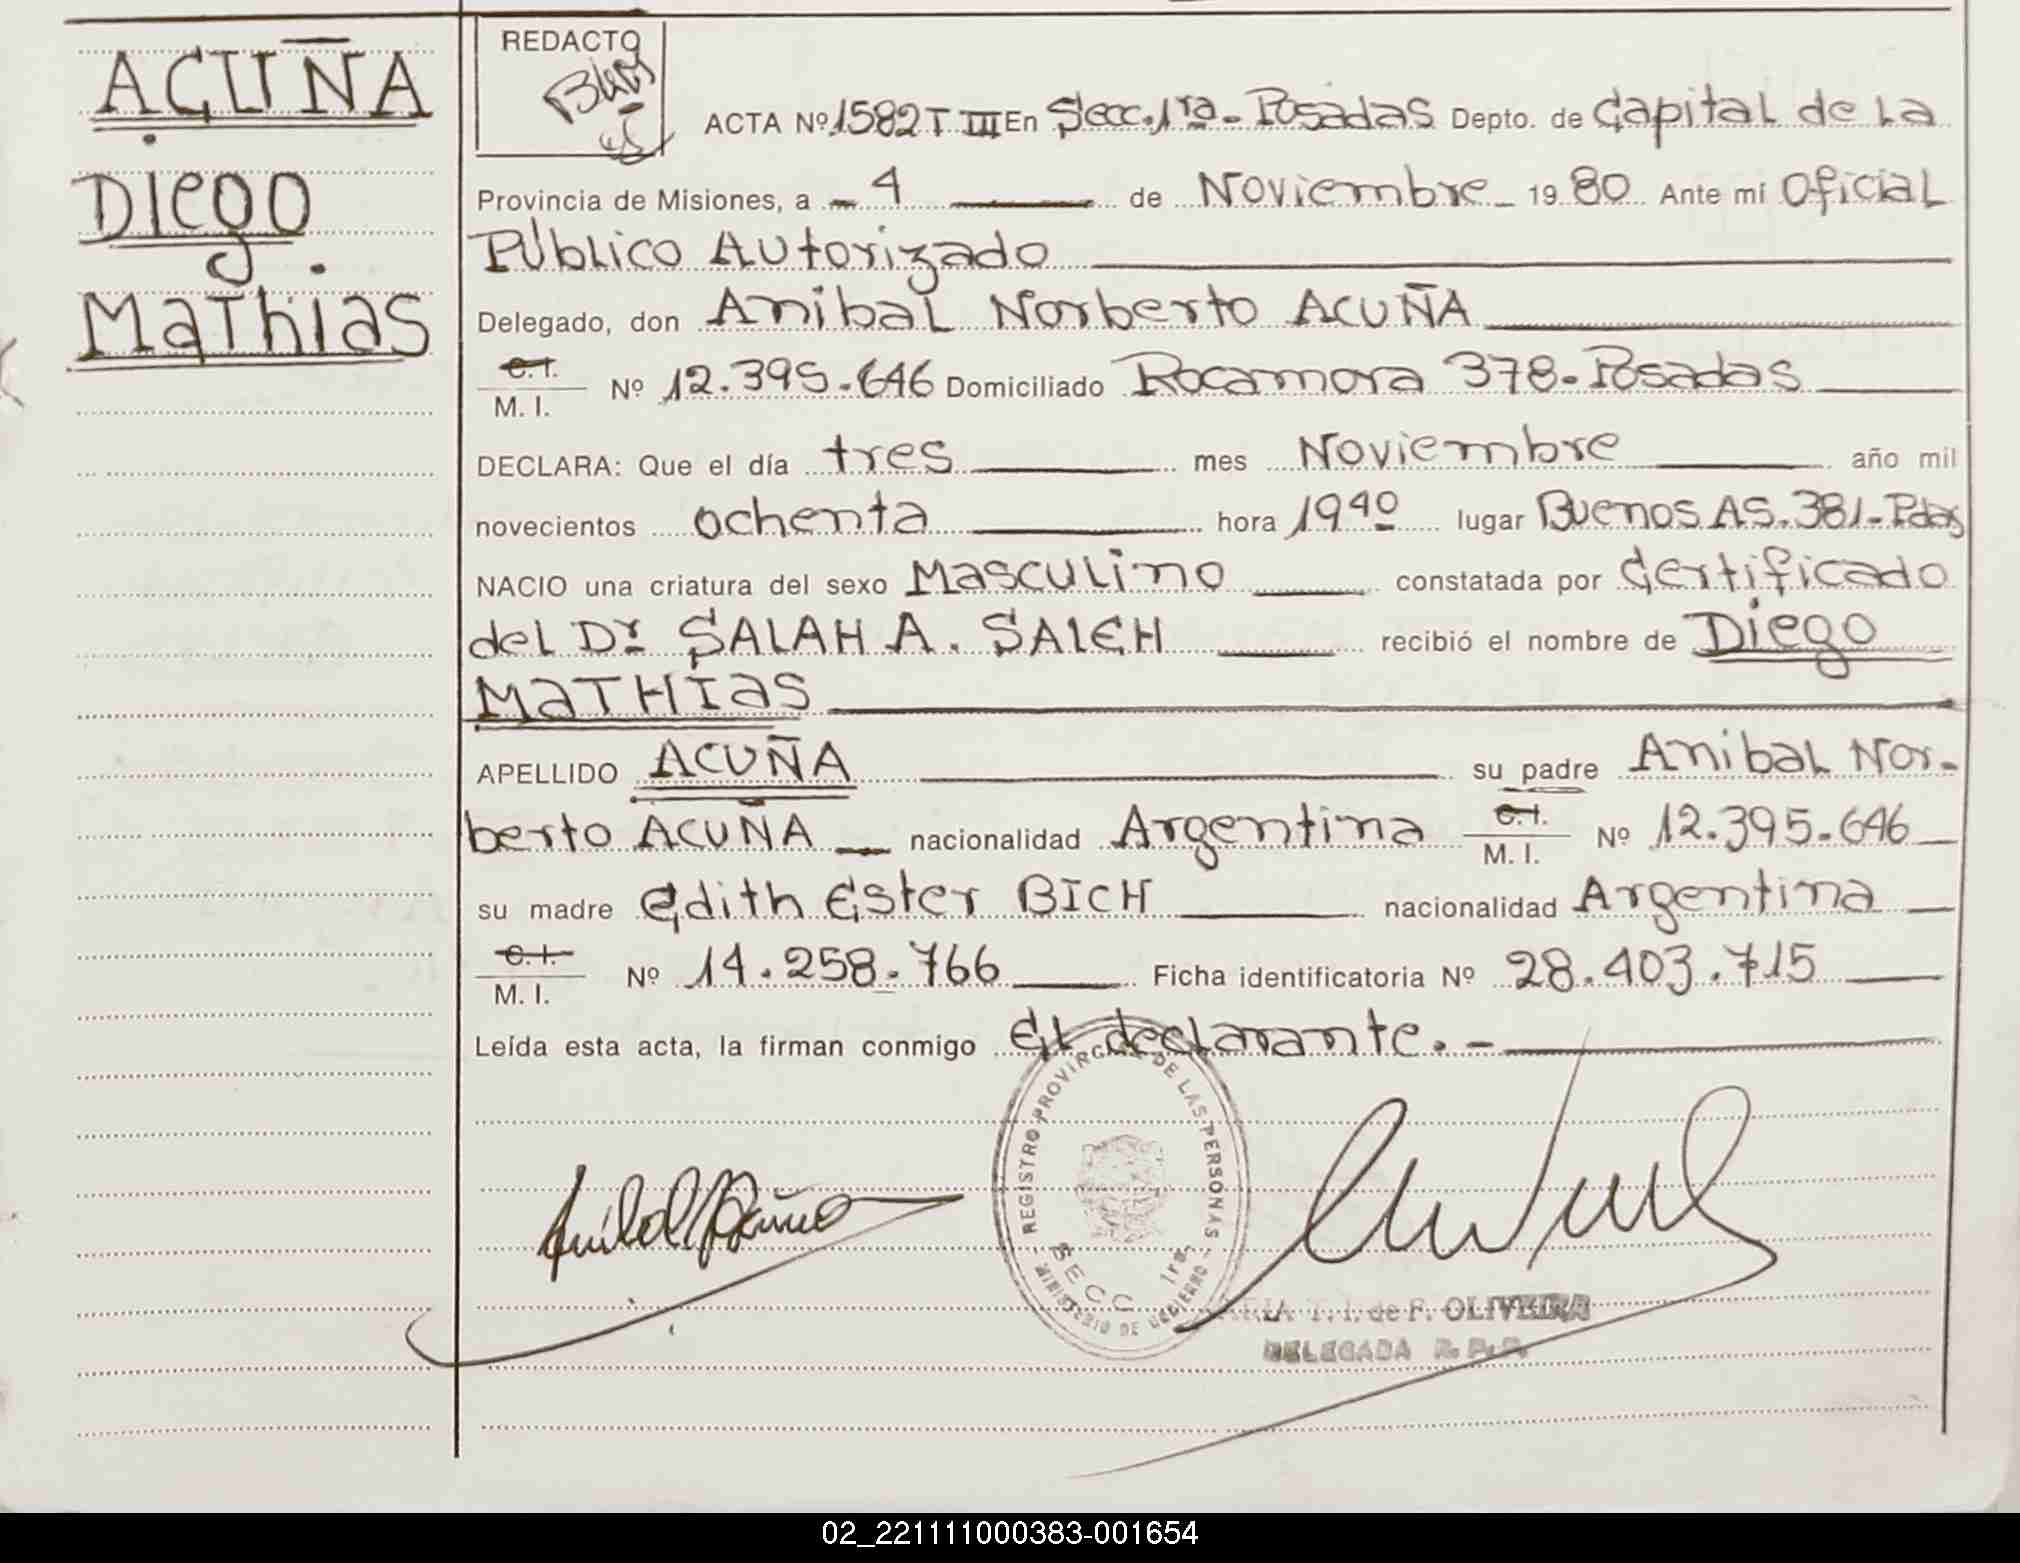 ACUÑA
Diego
Mathias
REDACTO
ACTA Nº 1582 T III En Secc. 1ra - Posadas Depto. de Capital de La
Provincia de Misiones, a 4 de Noviembre 1980 Ante mí Oficial
Público Autorizado
Delegado, don Anibal Norberto ACUÑA
C. I.
M. I. Nº 12.395.646 Domiciliado Rocamora 378 - Posadas
DECLARA: Que el día tres mes Noviembre año mil
novecientos ochenta hora 19 40 lugar Buenos As. 381 - Pdas
NACIO una criatura del sexo Masculino constatada por Certificado
del Dr SALAH A. SALEH recibió el nombre de Diego
MATHIAS
APELLIDO ACUÑA su padre Anibal Nor-
berto ACUÑA nacionalidad Argentina C. I. M. I. Nº 12.395.646
su madre Edith Ester BICH nacionalidad Argentina
C. I.
M. I. Nº 14.258.766 Ficha identificatoria Nº 28.403.715
Leída esta acta, la firman conmigo El declarante. -
REGISTRO PROVINCIAL DE LAS PERSONAS
SECC 1ra
MINISTERIO DE GOBIERNO
Anibal Acuña
T. I. de F. OLIVEIRA
DELEGADA R. P. P.
02_221111000383-001654